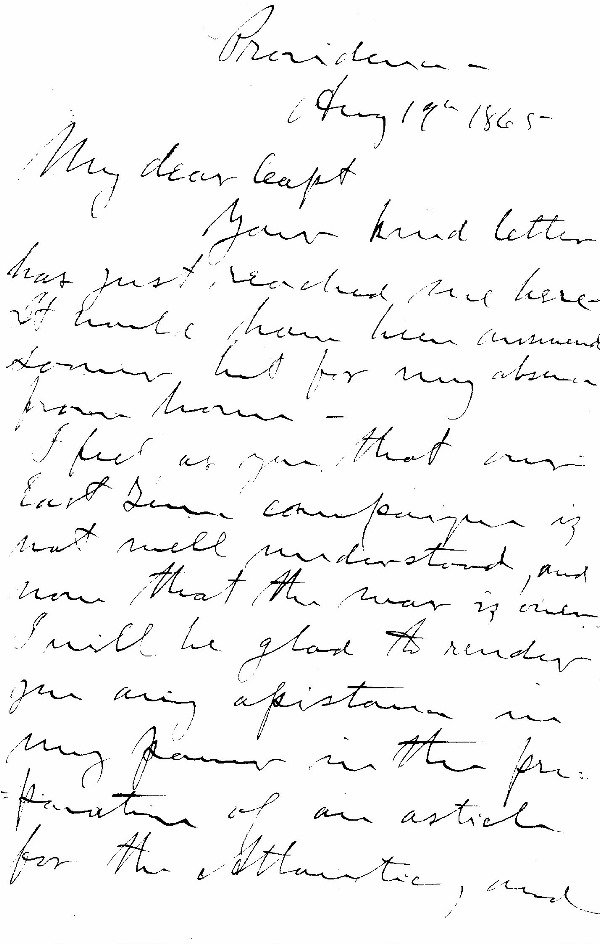 Providence -
Aug 19th 1865
My dear Capt
Your kind letter
has just reached me here -
It would have been answered
sooner but for my absence
from home -
I feel as you that our
East Tenn campaign is
not well understood, and
now that the war is over
I will be glad to render
you any assistance in
my power in the pre=
=paration of an article
for the Atlantic, and